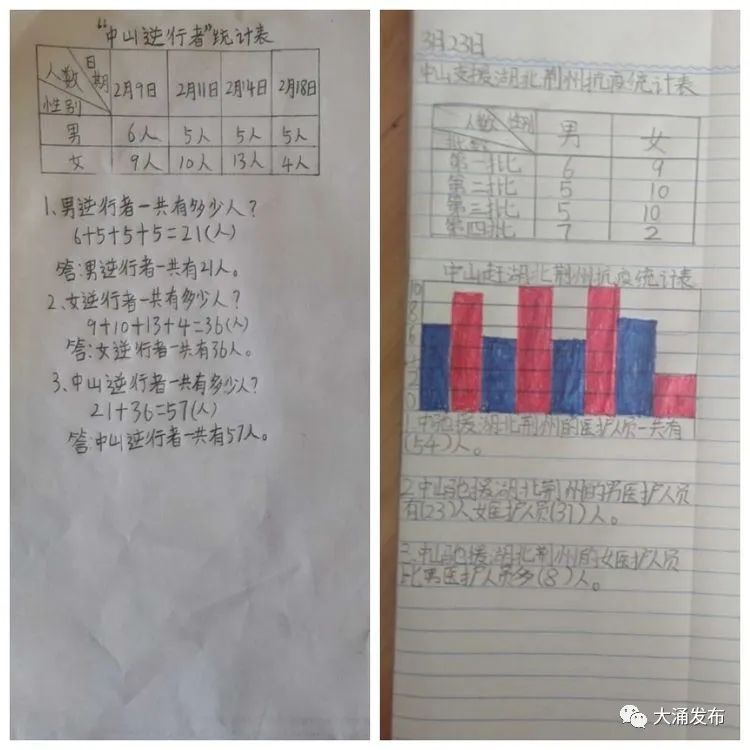 “中山逆行者”统计表
日期
人数
性别
2月9日 2月11日 2月14日 2月18日
男 6人 5人 5人 5人
女 9人 10人 13人 4人
1、男逆行者一共有多少人?
6+5+5+5=21(人)
答:男逆行者一共有21人。
2、女逆行者一共有多少人?
9+10+13+4=36(人)
答:女逆行者一共有36人。
3、中山逆行者一共有多少人?
21+36=57(人)
答:中山逆行者一共有57人。
3月23日
中山支援湖北荆州抗疫统计表
人数 性别 男 女
批数
第一批 6 9
第二批 5 10
第三批 5 10
第四批 7 2
中山赶湖北荆州抗疫统计表
10
8
6
2
0
1.中山驰援湖北荆州的医护人员一共有
(54)人。
2.中山驰援湖北荆州的男医护人员
有(23)人女医护人员(31)人。
3.中山驰援湖北荆州的女医护人员
比男医护人员多(8)人。
大涌发布